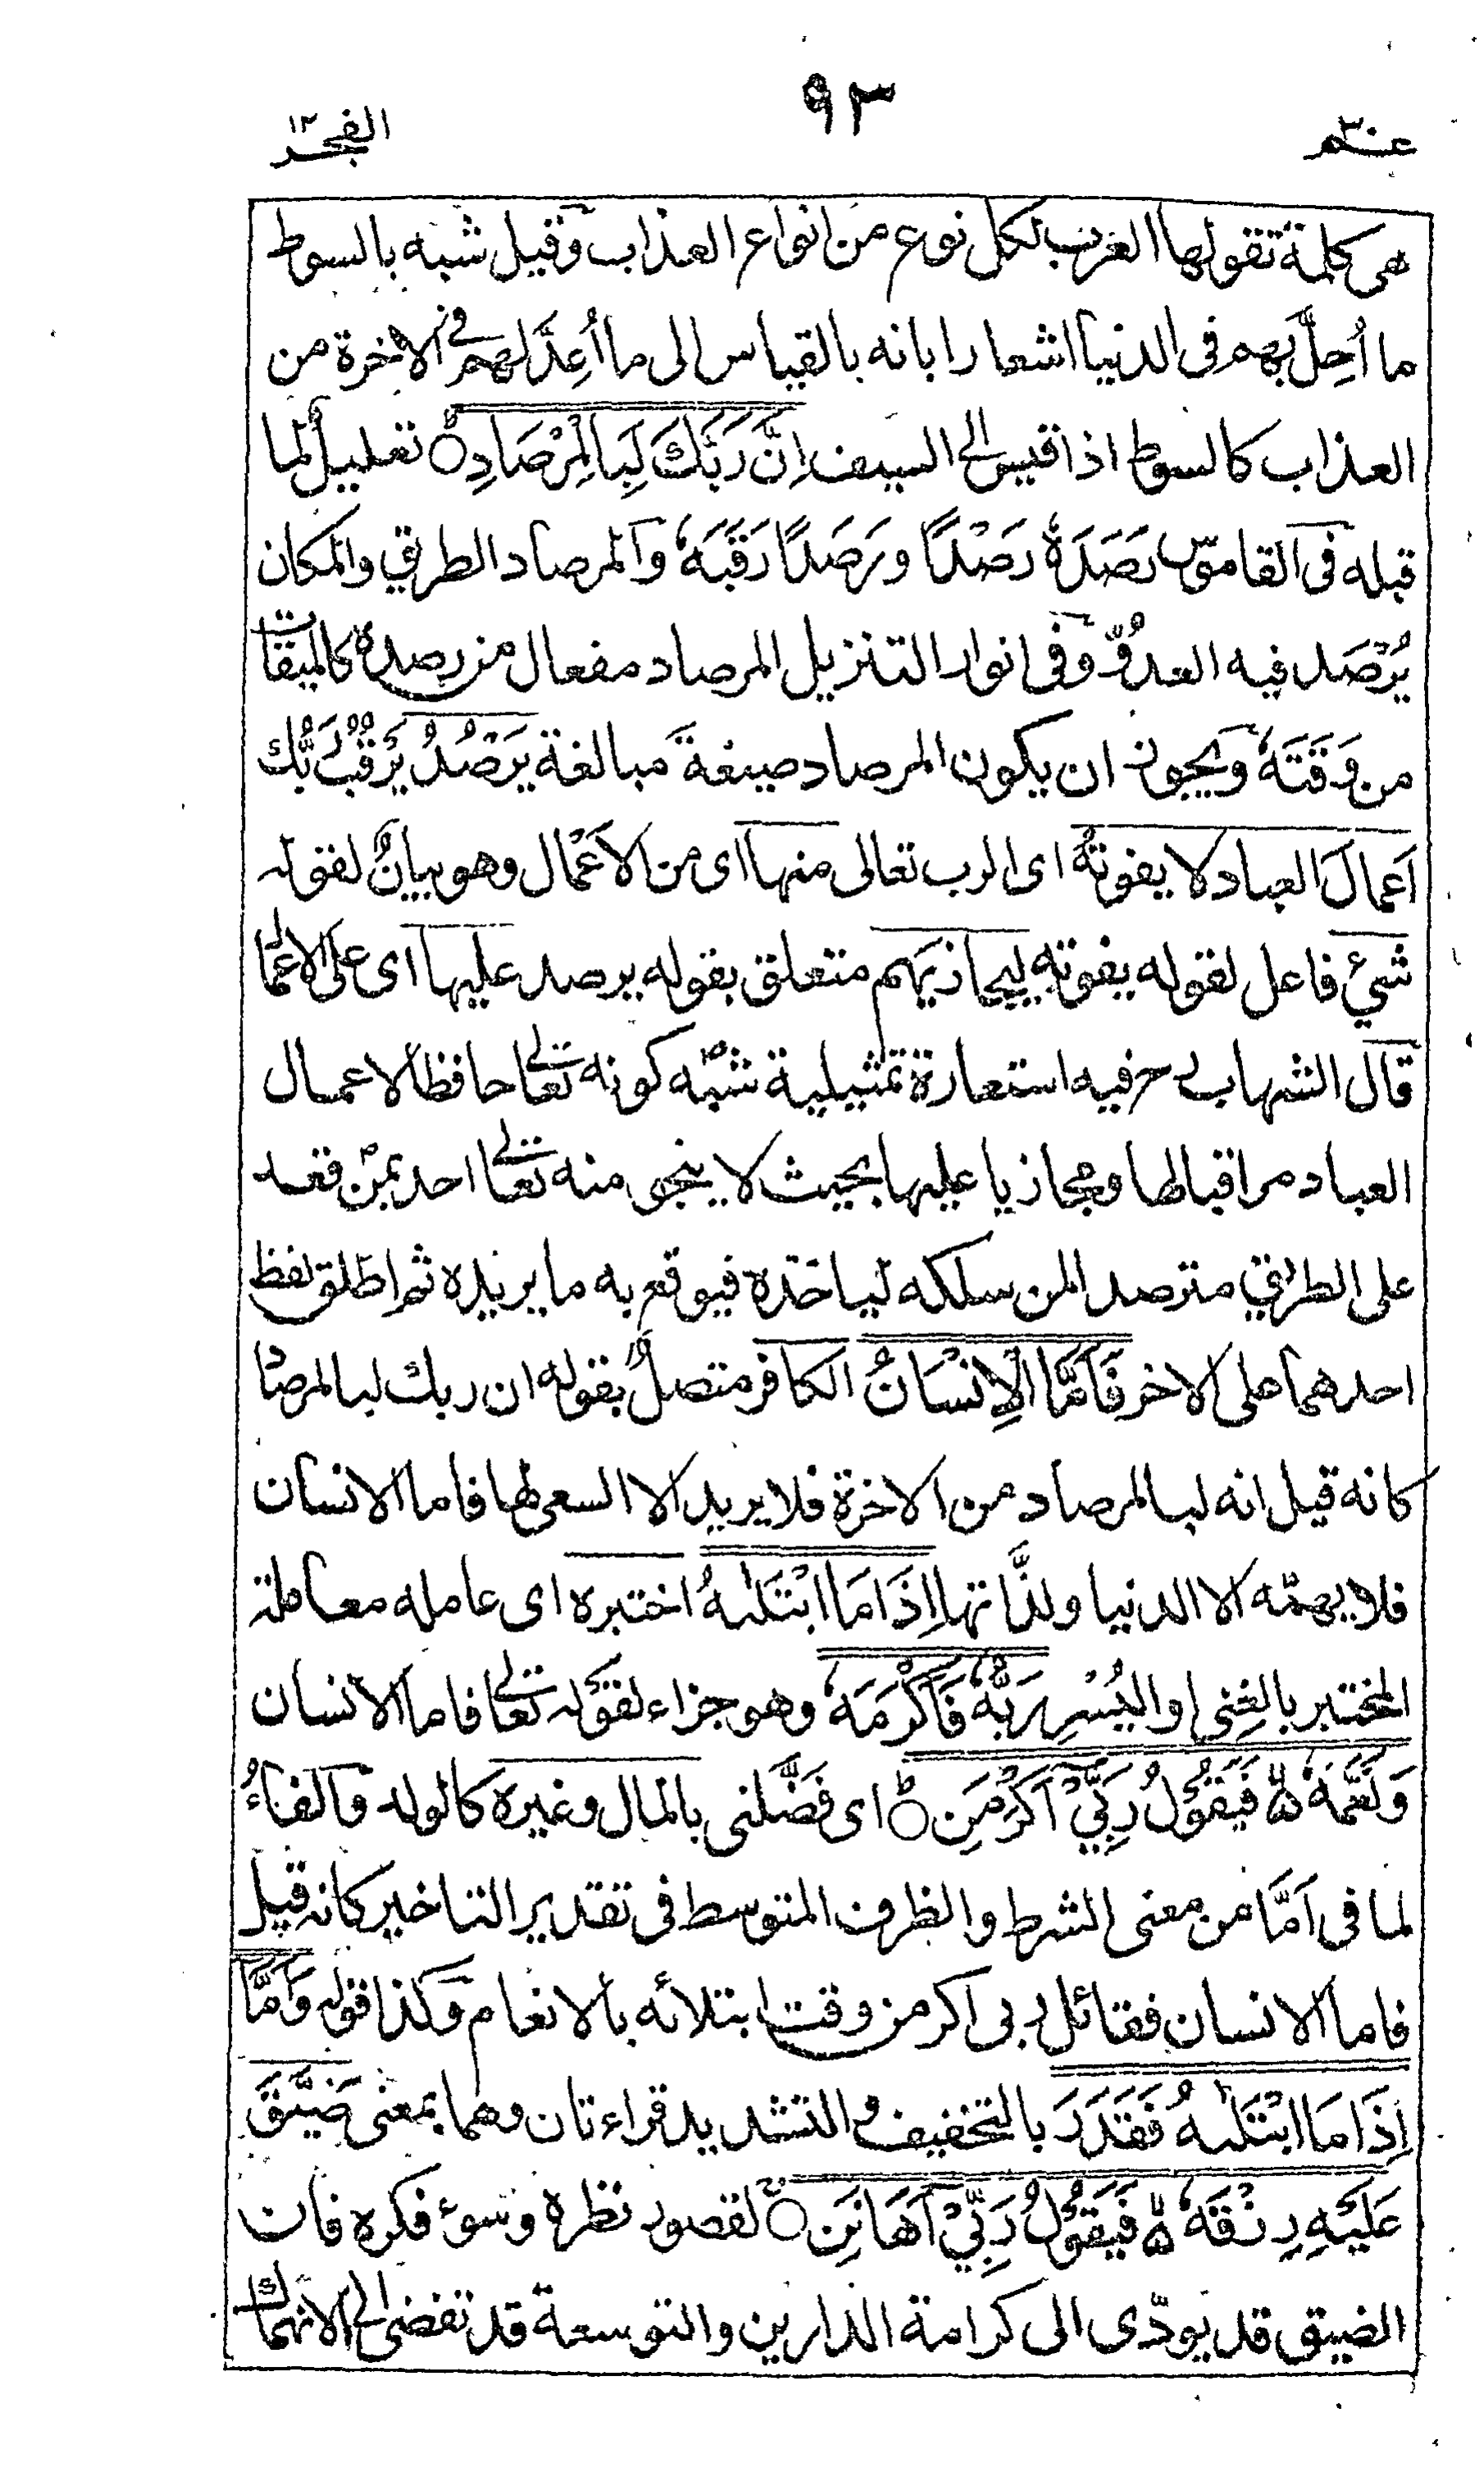 عم ٣٠
٩٣
الفجر ١٢
هى كلمة تقولها العرب لكل نوع من انواع العذاب وقيل شبه بالسوط
ما اُحِلَّ بهم فى الدنيا اشعارا بانه بالقياس الى ما اُعِدَّ لهم فى الاخرة من
العذاب كالسوط اذا قيس الى السيف اِنَّ رَبَّكَ لَبِالْمِرْصَادِ تعليلٌ لما
قبله فى القاموس رَصَدَهٗ رَصْدًا ورَصَدًا رَقَبَهٗ والمرصاد الطريق والمكان
يُرْصَد فيه العدُوّ وفى انوار التنزيل المرصاد مفعال من رصده كالميقات
من وَقَتَهٗ ويجوز ان يكون المرصاد صيغة مبالغة يَرْصُدُ يَرْقُبُ رَبُّك
اَعمالَ العباد لا يفوتهٗ اى الرب تعالى منها اى من الاَعْمال وهو بيانٌ لقوله
شىئ فاعل لقوله يفوته ليجازيهم متعلق بقوله يرصد عليها اى على الاعما
قال الشهاب رح فيه استعارة تمثيلية شبّه كونه تعالى حافظا لاعمال
العباد مراقبا لها ومجازيا عليها بحيث لا ينجى منه تعالى احد بمن قعد
على الطريق مترصدا لمن سلكه لياخذه فيوقع به ما يريده ثم اطلق لفظ
احدهما على الاخر فَاَمَّا الْاِنْسَانُ الكافر متصلٌ بقوله ان ربك لبالمرصاد
كانه قيل انه لبالمرصاد من الاخرة فلا يريد الا السعى لها فاما الانسان
فلا يهمّه الا الدنيا ولذّاتها اِذَا مَا ابْتَلٰىهُ اختبره اى عامله معاملة
المختبر بالغِنى والْيُسْرِ رَبُّهٗ فَاَكْرَمَهٗ وهو جزاء لقوله تعالى فاما الانسان
وَنَعَّمَهٗ ۙ۬ فَيَقُوْلُ رَبِّيْ اَكْرَمَنِ اى فَضَّلنى بالمال وغيره كالولد والفاءُ
لما فى اَمَّا من معنى الشرط والظرف المتوسط فى تقدير التاخير كانه قيل
فاما الانسان فقائل ربى اكرمن وقت ابتلائه بالانعام وكذا قوله وَاَمَّا
اِذَا مَا ابْتَلٰىهُ فَقَدَرَ بالتخفيف والتشديد قراءتان وهما بمعنى ضَيَّقَ
عَلَيْهِ رِزْقَهٗ ۙ۬ فَيَقُوْلُ رَبِّيْ اَهَانَنِ لقصور نظره وسوء فكره فان
الضيق قد يودّى الى كرامة الدارين والتوسعة قد تفضى الى الانهماك